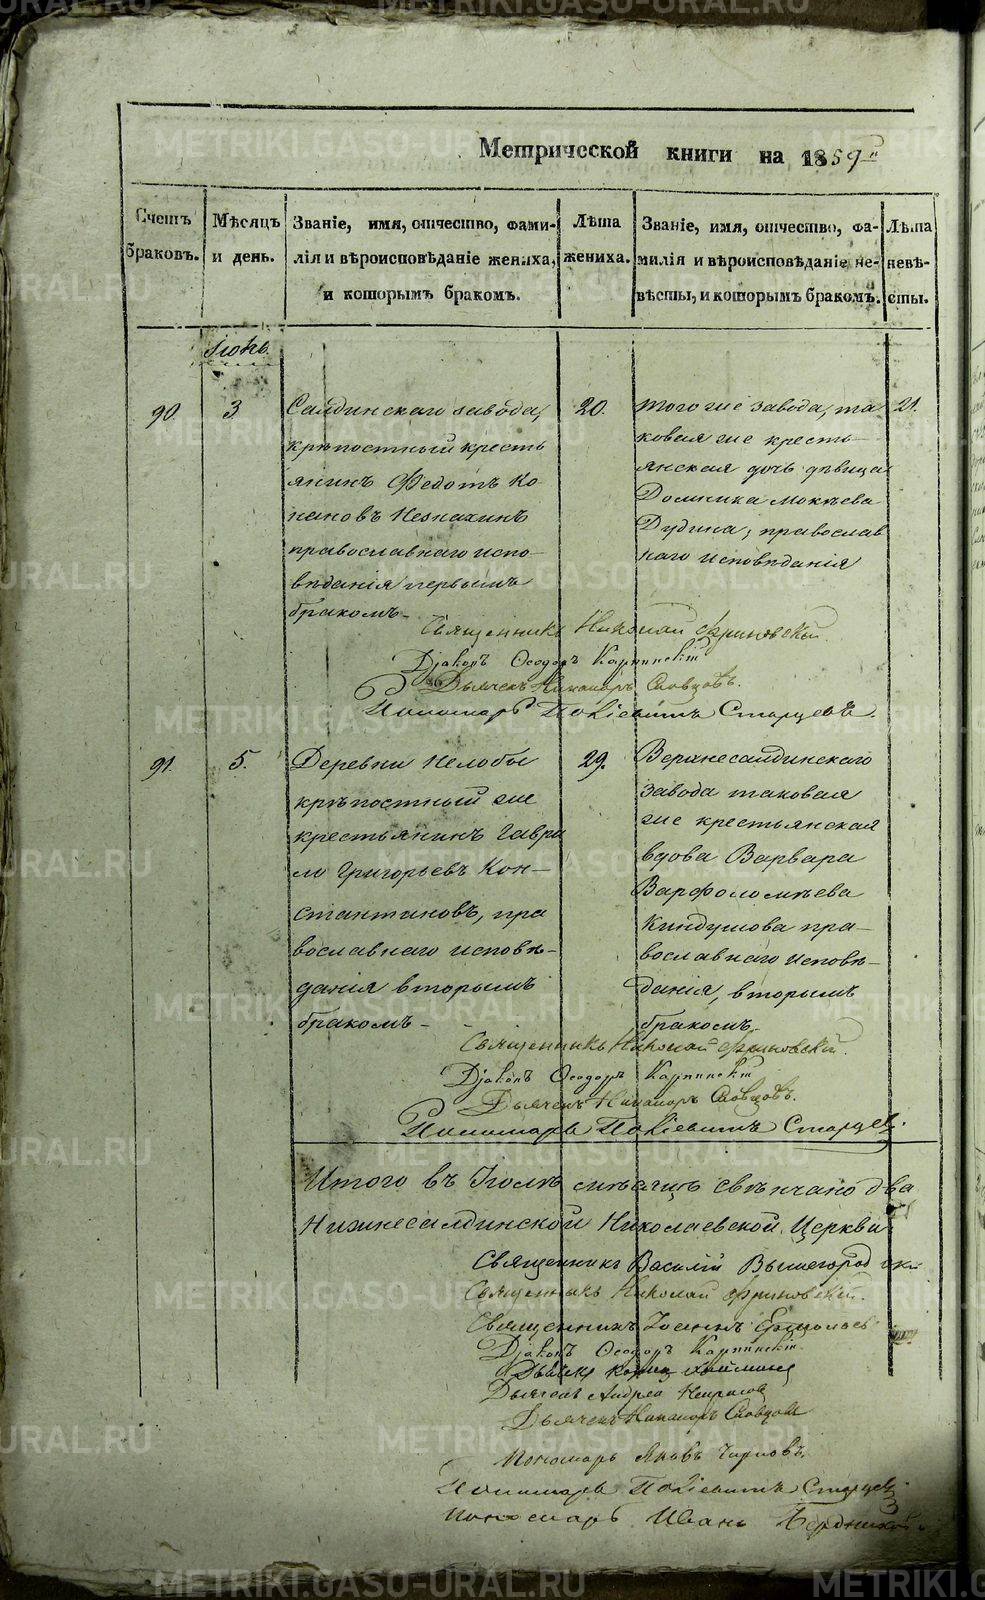 METRIKI.GASO-URAL.RU
Метрической книги на 1859й
Счетъ браковъ.
Мѣсяцъ и день.
Званіе, имя, отчество, фами-
лія и вѣроисповѣданіе жениха,
и которымъ бракомъ.
Лѣта
жениха.
Званіе, имя, отчество, фа-
милія и вѣроисповѣданіе не-
вѣсты, и которымъ бракомъ.
Лѣта
невѣ-
сты.
90.
3
Салдинскаго завода,
крѣпостный кресть
янинъ Федотъ Ко
православнаго испо-
вѣданія первымъ
бракомъ-
20.
того же завода, та
ковая же кресть-
янская дочь дѣвица
Домника Мокѣева
Дудина, православ
наго исповѣданія
21.
Священникъ Николай Фриновскій.
Діаконъ Ѳеодоръ Карпинскій
Дьячекъ Никаноръ Словцовъ.
Пономарь Старцевъ.
91.
5.
Деревни Нелобы
крѣпостный же
крестьянинъ Гаври
ло Григорьевъ Кон-
стантиновъ, пра
вославнаго исповѣ-
данія вторымъ
бракомъ-
29.
Верхнесалдинскаго
завода таковая
же крестьянская
вдова Варвара
Варфоломѣева
пра-
вославнаго исповѣ-
данія, вторымъ
бракомъ.
Священникъ Николай Фриновскій.
Діаконъ Ѳеодоръ Карпинскій
Дьячекъ Никаноръ Словцовъ.
Пономарь Старцевъ.
Итого въ мѣсяцѣ свѣнчано два
Нижнесалдинской Николаевской Церкви
Священникъ Василій Вышегородскій
Священникъ Николай Фриновскій.
Священникъ Іоаннъ
Діаконъ Ѳеодоръ Карпинскій
Дьячекъ Андрей
Дьячекъ Никаноръ Словцовъ
Пономарь Яковъ
Пономарь Старцевъ
Пономарь Иванъ Бердниковъ